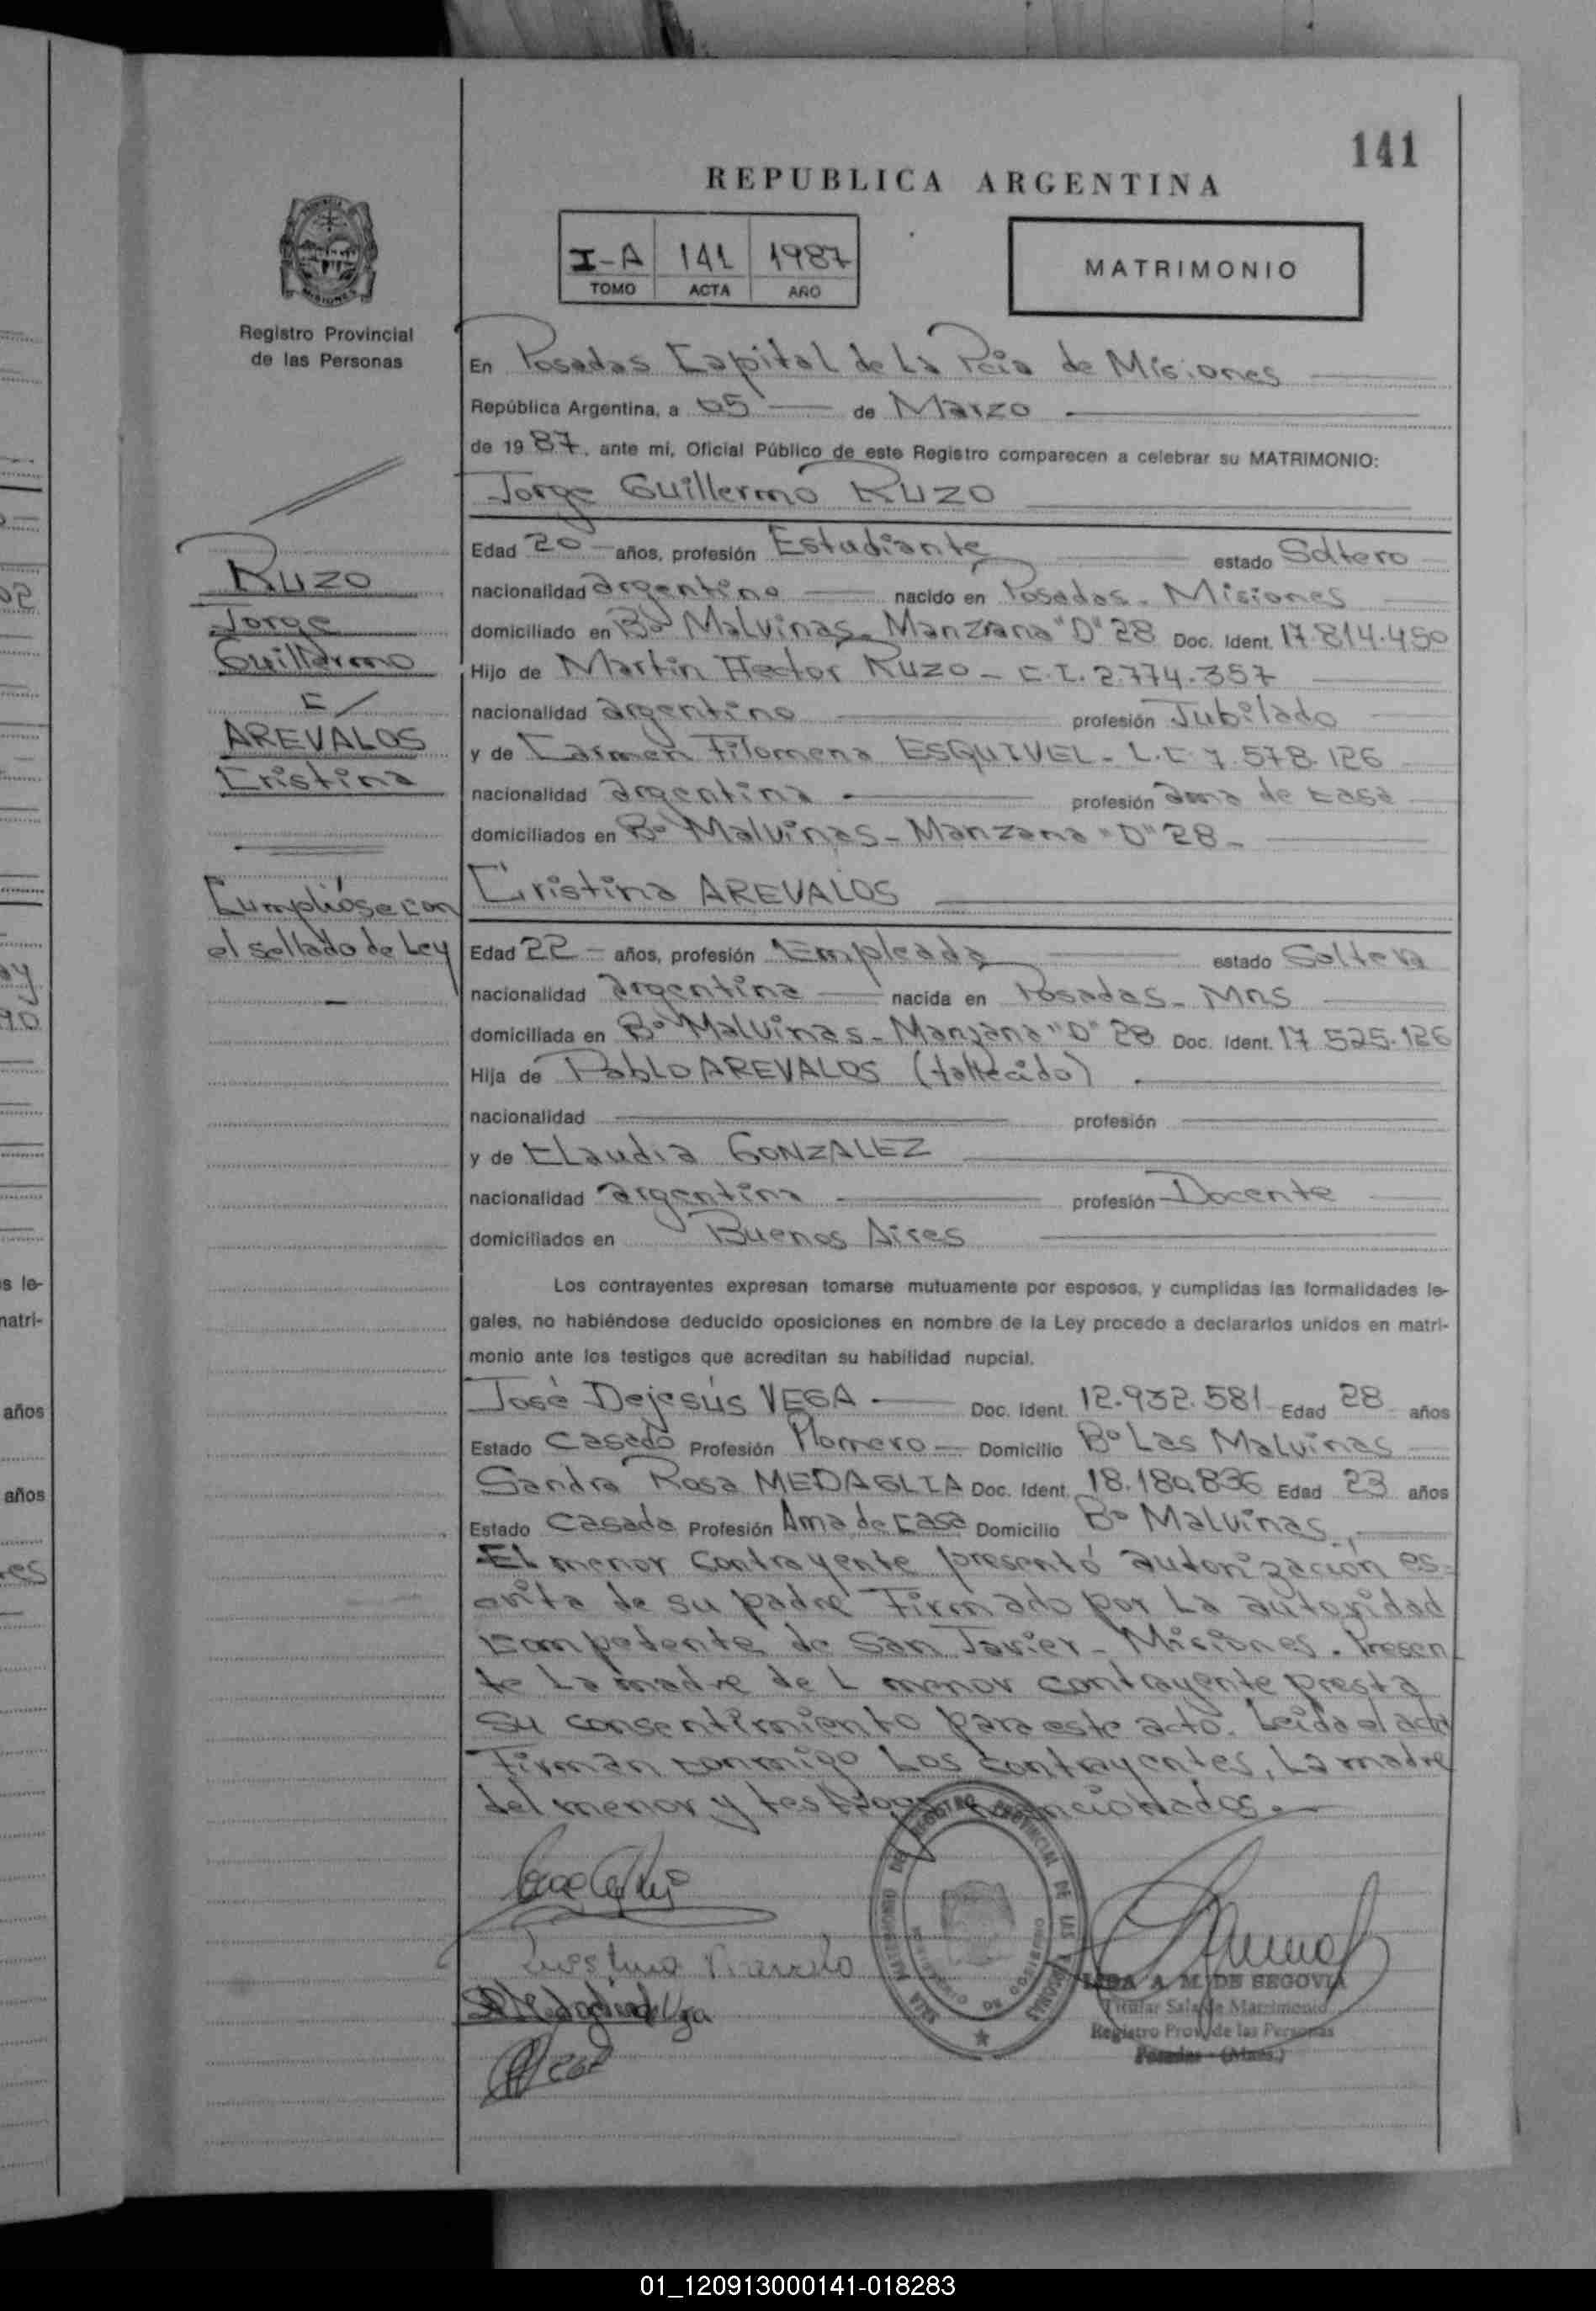 141
REPUBLICA ARGENTINA
I-A 141 1987
TOMO ACTA AÑO
MATRIMONIO
Registro Provincial
de las Personas
En Posadas Capital de La Pcia de Misiones
República Argentina, a 05 de Marzo
de 19 87, ante mi, Oficial Público de este Registro comparecen a celebrar su MATRIMONIO:
Jorge Guillermo RUZO
Edad 20 años, profesión Estudiante estado Soltero
nacionalidad argentino nacido en Posadas - Misiones
domiciliado en Bº Malvinas - Manzana "D" 28 Doc. Ident. 17.814.450
Hijo de Martin Hector RUZO - C.I. 2.774.357
nacionalidad argentino profesión Jubilado
y de Carmen Filomena ESQUIVEL - L.C 7.578.126
nacionalidad argentina profesión ama de casa
domiciliados en Bº Malvinas - Manzana "D" 28 -
Cristina AREVALOS
Edad 22 - años, profesión Empleada estado Soltera
nacionalidad argentina nacida en Posadas - Mns
domiciliada en Bº Malvinas - Manzana "D" 28 Doc. Ident. 17.525.126
Hija de Pablo AREVALOS (fallecido)
nacionalidad profesión
y de Claudia GONZALEZ
nacionalidad argentina profesión Docente
domiciliados en Buenos Aires
Los contrayentes expresan tomarse mutuamente por esposos, y cumplidas las formalidades le-
gales, no habiéndose deducido oposiciones en nombre de la Ley procedo a declararlos unidos en matri-
monio ante los testigos que acreditan su habilidad nupcial.
José Dejesús VEGA Doc. Ident. 12.932.581 Edad 28 años
Estado Casado Profesión Plomero Domicilio Bº Las Malvinas
Sandra Rosa MEDAGLIA Doc. Ident. 18.180.836 Edad 23 años
Estado Casada Profesión Ama de casa Domicilio Bº Malvinas.,
El menor contrayente presentó autorización es-
crita de su padre Firmado por La autoridad
competente de San Javier - Misiones. Presen
te La madre de L menor contrayente presta
su consentimiento para este acto. Leida el acta
Firman conmigo Los contrayentes, La madre
del menor y testigos mencionados.-
Ruzo
Jorge
Guillermo
C/
AREVALOS
Cristina
Cumplióse con
el sellado de Ley
LIDA A. M. DE SEGOVIA
Titular Sala de Matrimonio
Registro Prov. de las Personas
Posadas - (Mnes.)
s le-
matri-
años
años
01_120913000141-018283